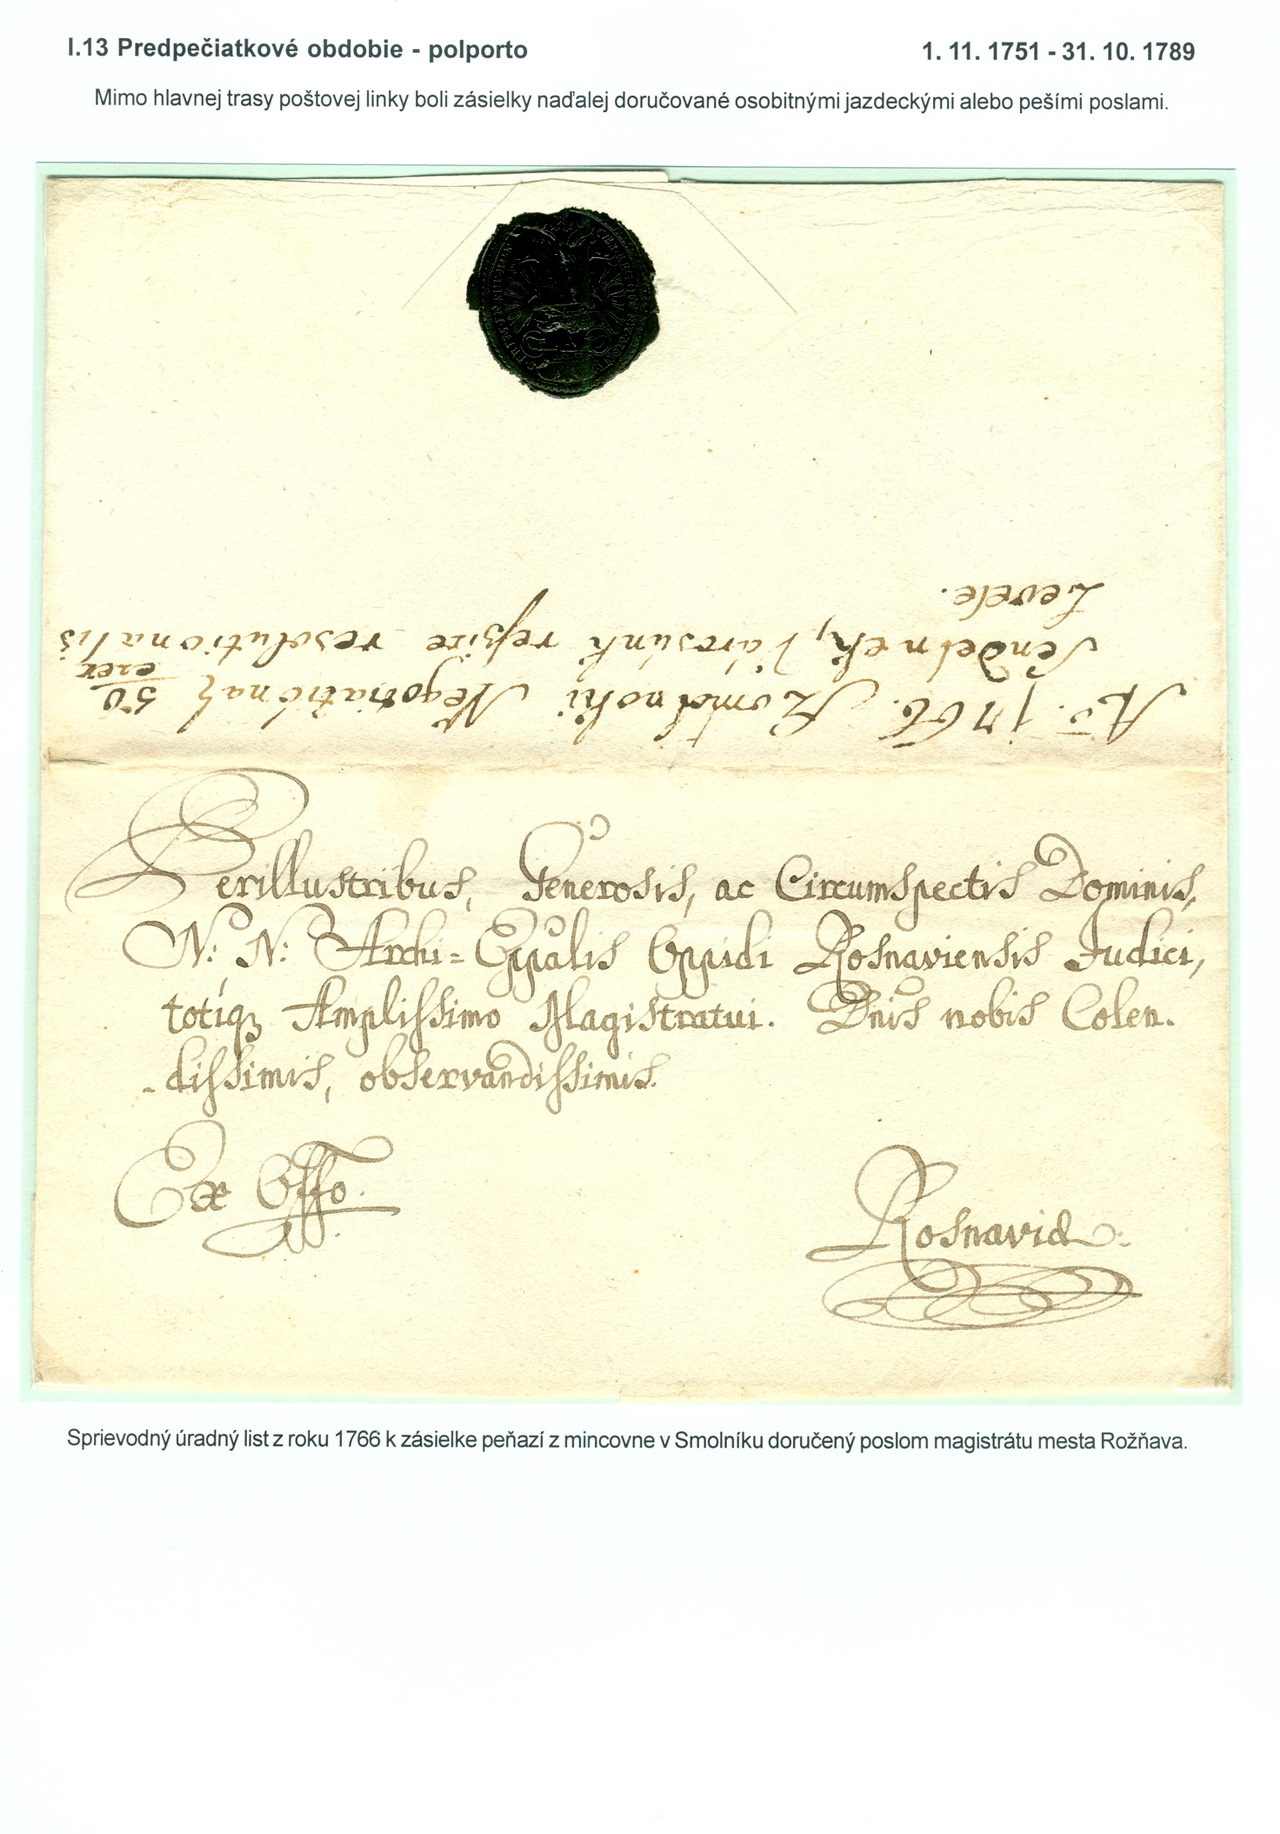 I.13 Predpečiatkové obdobie - polporto 1. 11. 1751 - 31. 10. 1789
Mimo hlavnej trasy poštovej linky boli zásielky naďalej doručované osobitnými jazdeckými alebo pešími poslami.
Ao. 1766. Szomolnoki Negotiationał 50
ezer
Sendelnek, Városunk részire resolutionalis
Levele.
Perillustribus, Generosis, ac Circumspectis Dominis,
N: N: Archi-Eppalis Oppidi Rosnaviensis Judici,
totiq Amplissimo Magistratui. Dnis nobis Colen.
-dissimis, observandissimis.
Ex Offo.
Rosnaviæ.
Sprievodný úradný list z roku 1766 k zásielke peňazí z mincovne v Smolníku doručený poslom magistrátu mesta Rožňava.